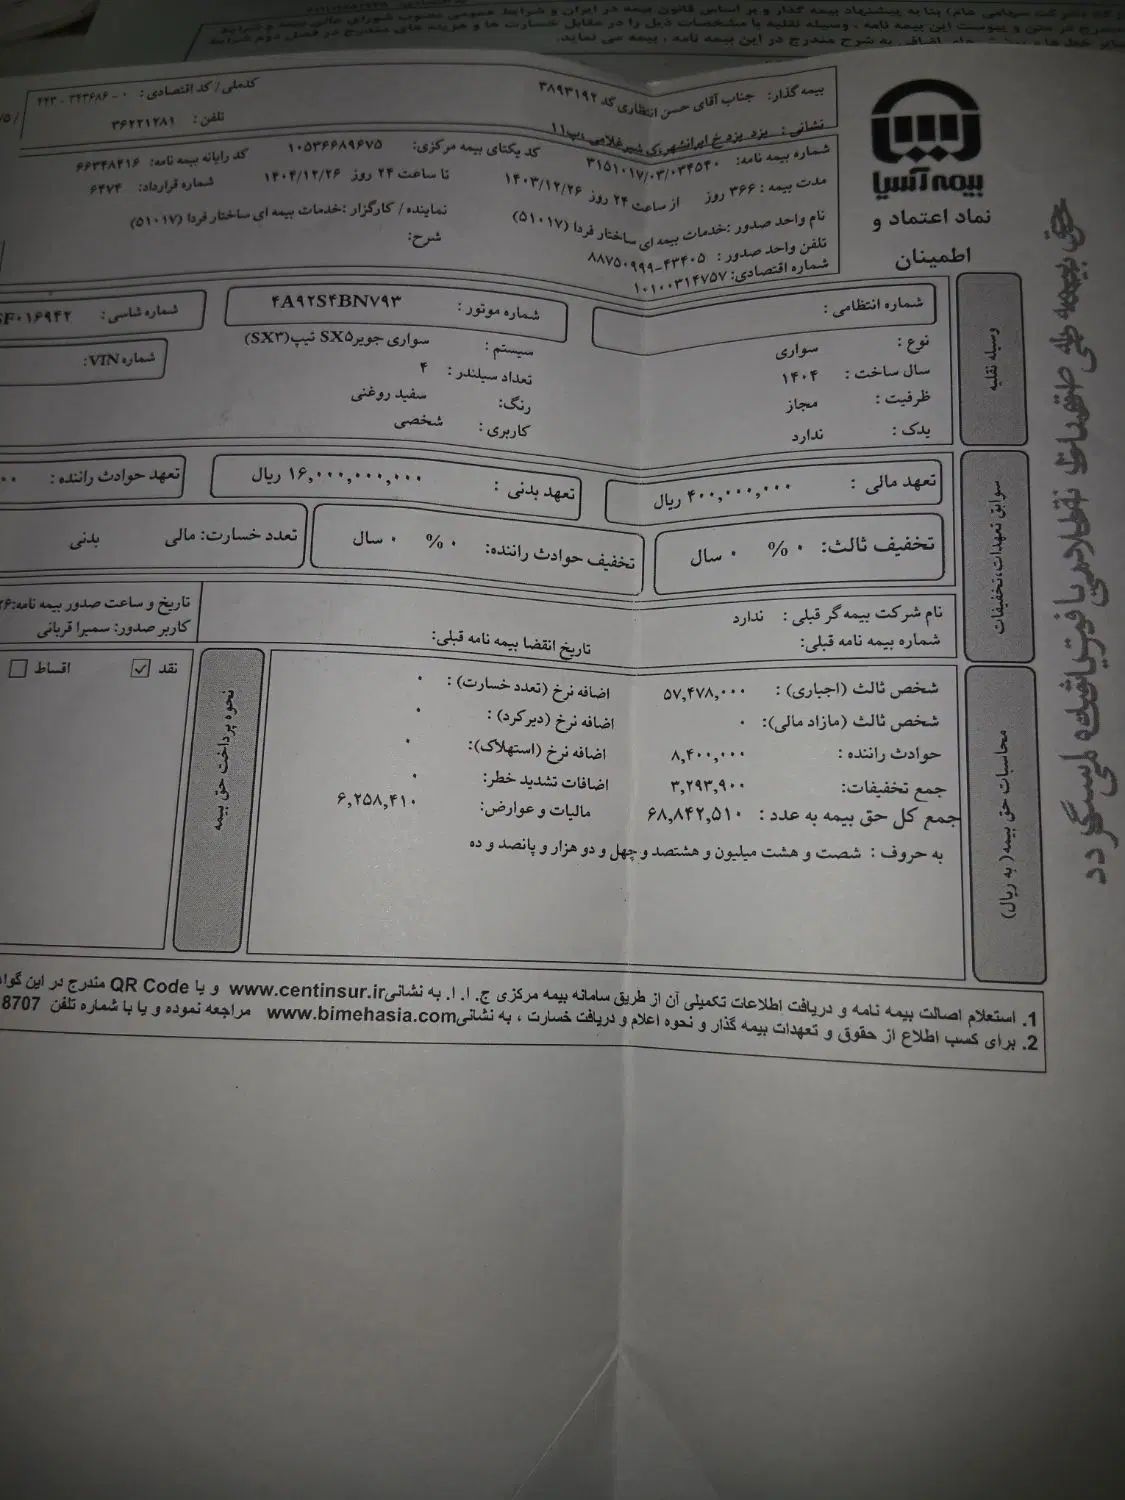 بیمه آسیا
نماد اعتماد و
اطمینان
بیمه گذار: جناب آقای حسن انتظاری کد ۳۸۹۳۱۹۲
کدملی/ کد اقتصادی: ۰ - ۳۴۳۶۸۶ - ۴۴۳
نشانی: یزد یزد خ ایرانشهر،ک شیرغلامی ،پ۱۱
تلفن: ۳۶۲۲۱۲۸۱
شماره بیمه نامه: ۳۱۵۱۰۱۷/۰۳/۰۳۴۵۴۰
کد یکتای بیمه مرکزی: ۱۰۵۳۶۶۸۹۶۷۵
کد رایانه بیمه نامه: ۶۶۳۴۸۲۱۶
مدت بیمه : ۳۶۶ روز از ساعت ۲۴ روز ۱۴۰۳/۱۲/۲۶
تا ساعت ۲۴ روز ۱۴۰۴/۱۲/۲۶
شماره قرارداد: ۶۴۷۴
نام واحد صدور :خدمات بیمه ای ساختار فردا (۵۱۰۱۷)
نماینده / کارگزار :خدمات بیمه ای ساختار فردا (۵۱۰۱۷)
تلفن واحد صدور : ۴۳۴۰۵-۸۸۷۵۰۹۹۹
شرح:
شماره اقتصادی: ۱۰۱۰۰۳۱۴۷۵۷
وسیله نقلیه
شماره انتظامی :
شماره موتور : ۴A۹۲S۴BN۷۹۳
شماره شاسی: SF۰۱۶۹۴۲
نوع : سواری
سیستم : سواری جویر SX۵ تیپ(SX۳)
شماره VIN:
سال ساخت : ۱۴۰۴
تعداد سیلندر : ۴
ظرفیت : مجاز
رنگ: سفید روغنی
یدک : ندارد
کاربری : شخصی
سوابق تعهدات،تخفیفات
تعهد مالی : ۴۰۰,۰۰۰,۰۰۰ ریال
تعهد بدنی : ۱۶,۰۰۰,۰۰۰,۰۰۰ ریال
تعهد حوادث راننده :
تخفیف ثالث: ۰ % ۰ سال
تخفیف حوادث راننده: ۰ % ۰ سال
تعدد خسارت: مالی بدنی
نام شرکت بیمه گر قبلی : ندارد
شماره بیمه نامه قبلی:
تاریخ انقضا بیمه نامه قبلی:
تاریخ و ساعت صدور بیمه نامه:
کاربر صدور: سمیرا قربانی
محاسبات حق بیمه( به ریال)
شخص ثالث (اجباری) : ۵۷,۴۷۸,۰۰۰
اضافه نرخ (تعدد خسارت) : ۰
شخص ثالث (مازاد مالی): ۰
اضافه نرخ (دیرکرد) : ۰
حوادث راننده : ۸,۴۰۰,۰۰۰
اضافه نرخ (استهلاک): ۰
جمع تخفیفات: ۳,۲۹۳,۹۰۰
اضافات تشدید خطر: ۰
جمع کل حق بیمه به عدد : ۶۸,۸۴۲,۵۱۰
مالیات و عوارض: ۶,۲۵۸,۴۱۰
به حروف : شصت و هشت میلیون و هشتصد و چهل و دو هزار و پانصد و ده
نحوه پرداخت حق بیمه
نقد اقساط
1. استعلام اصالت بیمه نامه و دریافت اطلاعات تکمیلی آن از طریق سامانه بیمه مرکزی ج. ا. ا. به نشانیwww.centinsur.ir و یا QR Code مندرج در این
2. برای کسب اطلاع از حقوق و تعهدات بیمه گذار و نحوه اعلام و دریافت خسارت ، به نشانیwww.bimehasia.com مراجعه نموده و یا با شماره تلفن 8707